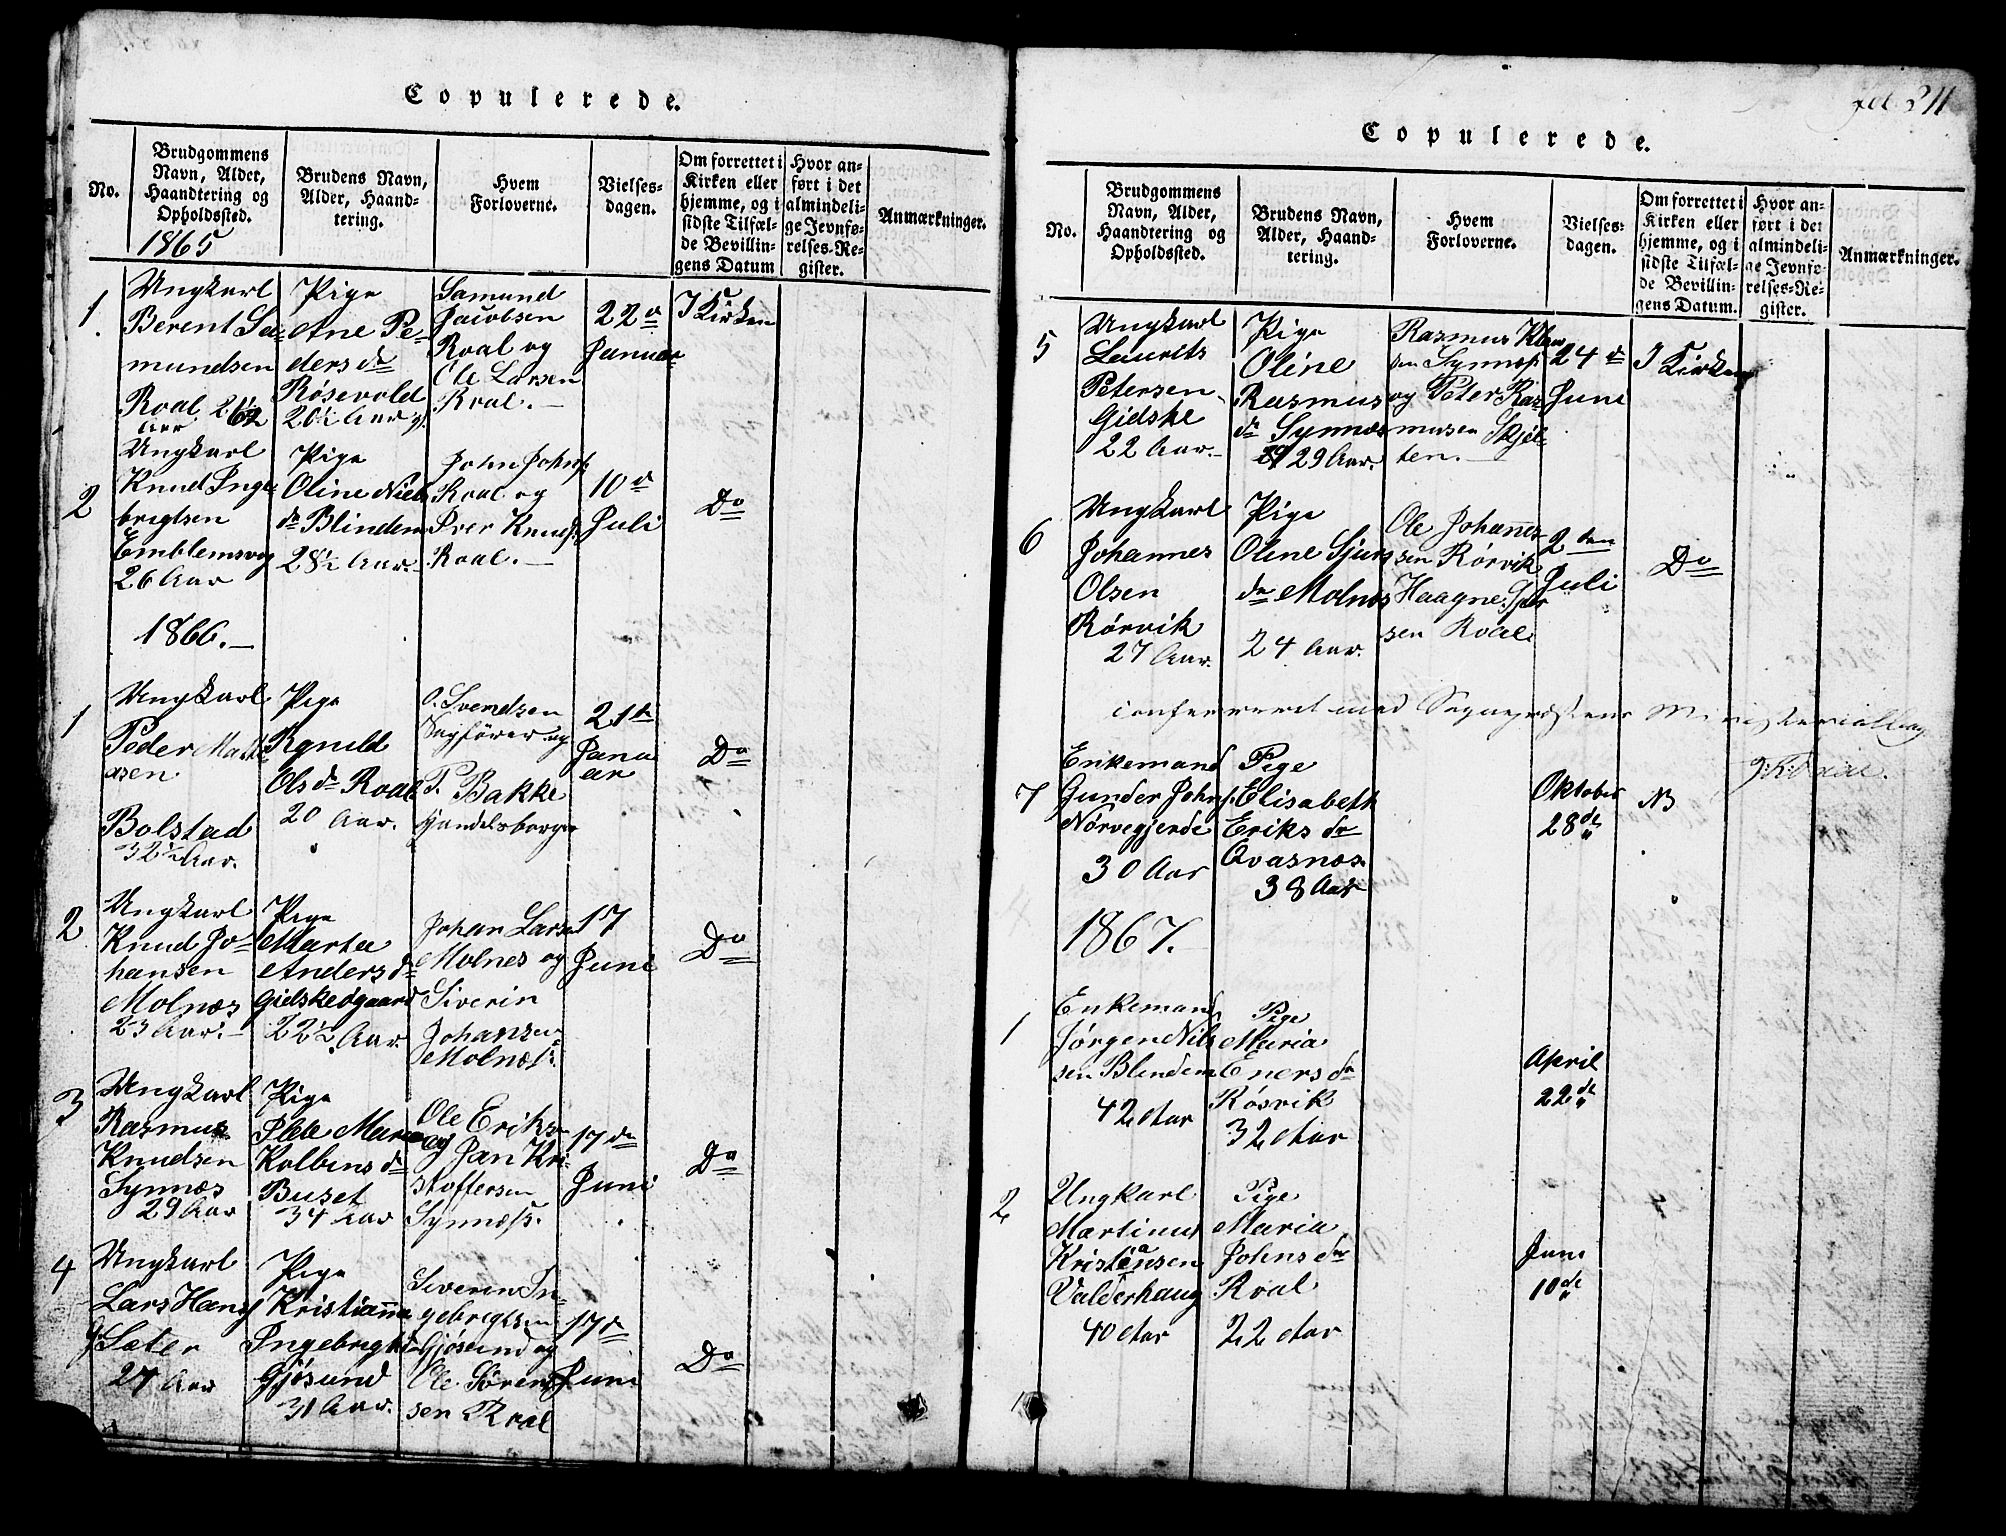 Copulerede.
No.
Brudgommens Navn, Alder, Haandtering og Opholdssted.
Brudens Navn, Alder, Haandtering.
Hvem Forloverne.
Vielsesdagen.
Om forrettet i Kirken eller hjemme, og i sidste Tilfælde Bevillingens Datum
Hvor anført i det almindelige Jevnførelses-Register.
Anmærkninger.
1865
1
Ungkarl
Berent Sa-
mundsen
Roal 26½
Aar
Pige
Ane Pe-
ders dr
Røsevold
20½ Aar
Samund
Jacobsen
Roal og
Ole Larsen
Roal. —
22d
Januar
I Kirken
2
Ungkarl
Knud Inge
brigtsen
Emblemsvog
26 Aar
Pige
Oline Niels
dr Blinden
28½ Aar.
John Johns.
Roal og
Iver Knuds.
Roal. —
10d
Juli
Do
1866. —
1
Ungkarl
Peder Matt
asen
Bolstad
32½ Aar.
Pige
Rgnild
Ols dr Roal
20 Aar.
O. Svendsen
Sagfører og
P. Bakke
Handelsborger
21de
Janu
ar
Do
2
Ungkarl
Knud Jo-
hansen
Molnæs
23 Aar. —
Pige
Marta
Anders dr
Gidskeøgaard
22½ Aar.
Johan Larsen
Molnes og
Siverin
Johansen
Molnæs.
17
Juni
Do
3
Ungkarl
Rasmus
Knudsen
Synnæs
29 Aar
Pige
Kolbens dr
Buset
34 Aar
Ole Eriks
og Jan Kri-
stoffersen
Synnæs.
17de
Juni
Do
4
Ungkarl
Lars Hans
Sæter
27 Aar
Pige
Kristianne
Ingebrigtsdr
Gjøsund
31 Aar.
Siverin In-
gebrigtsen
Gjøsund og
Ole Søren-
sen Roal
17d
Juni
Do
fol. 211
Copulerede.
No.
Brudgommens Navn, Alder, Haandtering og Opholdssted.
Brudens Navn, Alder, Haandtering.
Hvem Forloverne.
Vielsesdagen.
Om forrettet i Kirken eller hjemme, og i sidste Tilfælde Bevillingens Datum.
Hvor anført i det almindelige Jevnførelses-Register.
Anmærkninger.
5
Ungkarl
Laurits
Petersen
Gidske
22 Aar. —
Pige
Oline
Rasmus
dr Synnæs
29 Aar.
Rasmus
Synnæs
og Peter Ras-
musen Skjel-
ten. —
24d
Juni
I Kirken
6
Ungkarl
Johannes
Olsen
Rørvik
27 Aar.
Pige
Oline Sjurs
dr Molnæs
24 Aar.
Ole Johanes-
sen Rørvik
Haagne Iver
sen Roal
2den
Juli
Do
confereret med Sognepræstens Ministerialbog
7
Enkemand
Gunder Johns.
Nørvegjerde
30 Aar
Pige
Elisabeth
Eriks dr
Qvasnæs
38 Aar
Oktober
28de
1867.
1
Enkemand
Jørgen Nils
sen Blindem
42 Aar
Pige
Maria
Eners dr
Røsvik
32 Aar
April
22de
2
Ungkarl
Martinus
Kristensen
Valderhaug
40 Aar
Pige
Maria
Johns dr
Roal
22 Aar
Juni
10de